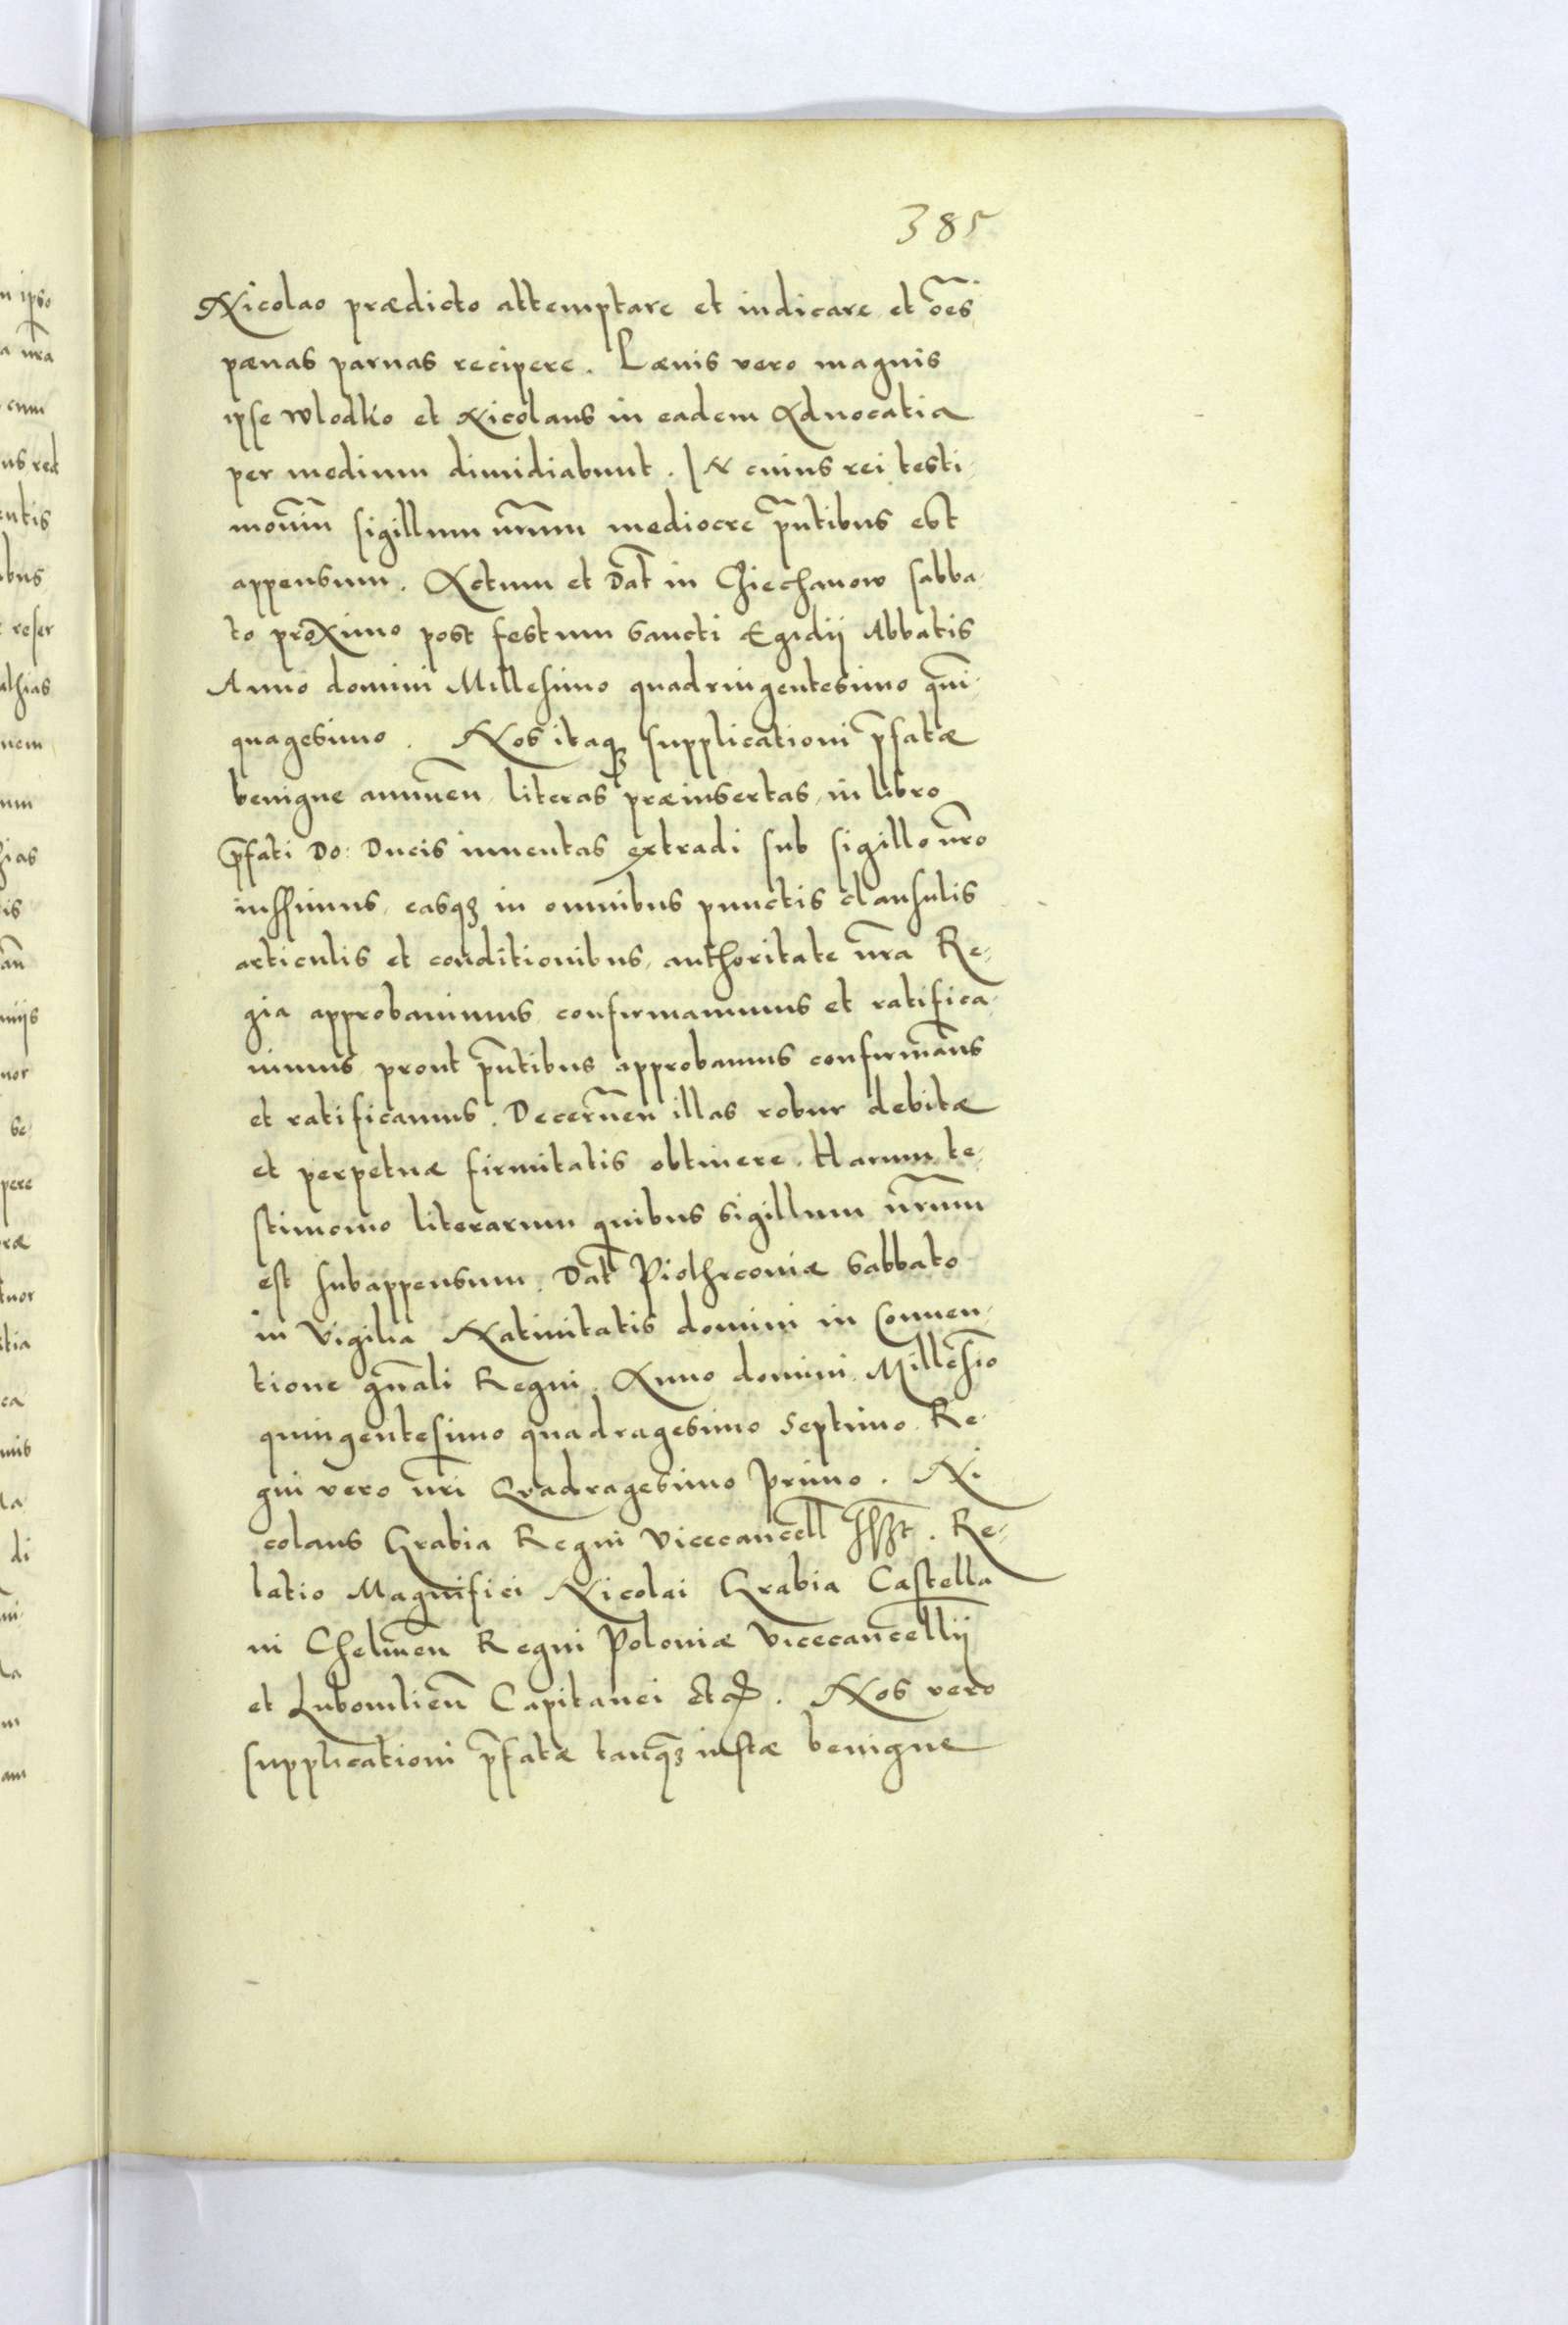 385
Nicolao prædicto attemptare et iudicare et oẽs
pœnas paruas recipere. Pœnis vero magnis
ipse Wlodko et Nicolaus in eadem Aduocatia
per medium dimidiabunt. In cuius rei testi-
moniũ sigillum nr̃um mediocre pñtibus est
appensum. Actum et Dat̃ in Cziechanow sabba-
to proximo post festum sancti Egidij Abbatis
Anno domini Millesimo quadringentesimo quĩ-
quagesimo. Nos itaqȝ supplicationi p̃fatæ
benigne annueñ, literas præinsertas, in libro
p̃fati Do: Ducis inuentas extradi sub sigillo nr̃o
iussimus, easqȝ in omnibus punctis clausulis
articulis et conditionibus, authoritate nr̃a Re-
gia approbauimus confirmauimus et ratifica-
uimus, prout pñtibus approbamus confirmam̃us
et ratificamus. Decerneñ illas robur debitæ
et perpetuæ firmitatis obtinere. Harum te-
stimonio literarum quibus sigillum nr̃um
est subappensum. Dat̃ Piothrcouiæ Sabbato
in Vigilia Natiuitatis domini in Conuen-
tione gñali Regni. Anno domini Millesĩo
quingentesimo quadragesimo septimo. Re-
gni vero nr̃i Quadragesimo primo. Ni
colaus Grabia Regni Vicecancell̃ sss̃t. Re-
latio Magnifici Nicolai Grabia Castella
ni Chelmeñ Regni Poloniæ Vicecancellij
et Lubomlieñ Capitanei etc. Nos vero
supplicationi p̃fatæ tanqȝ iustæ benigne